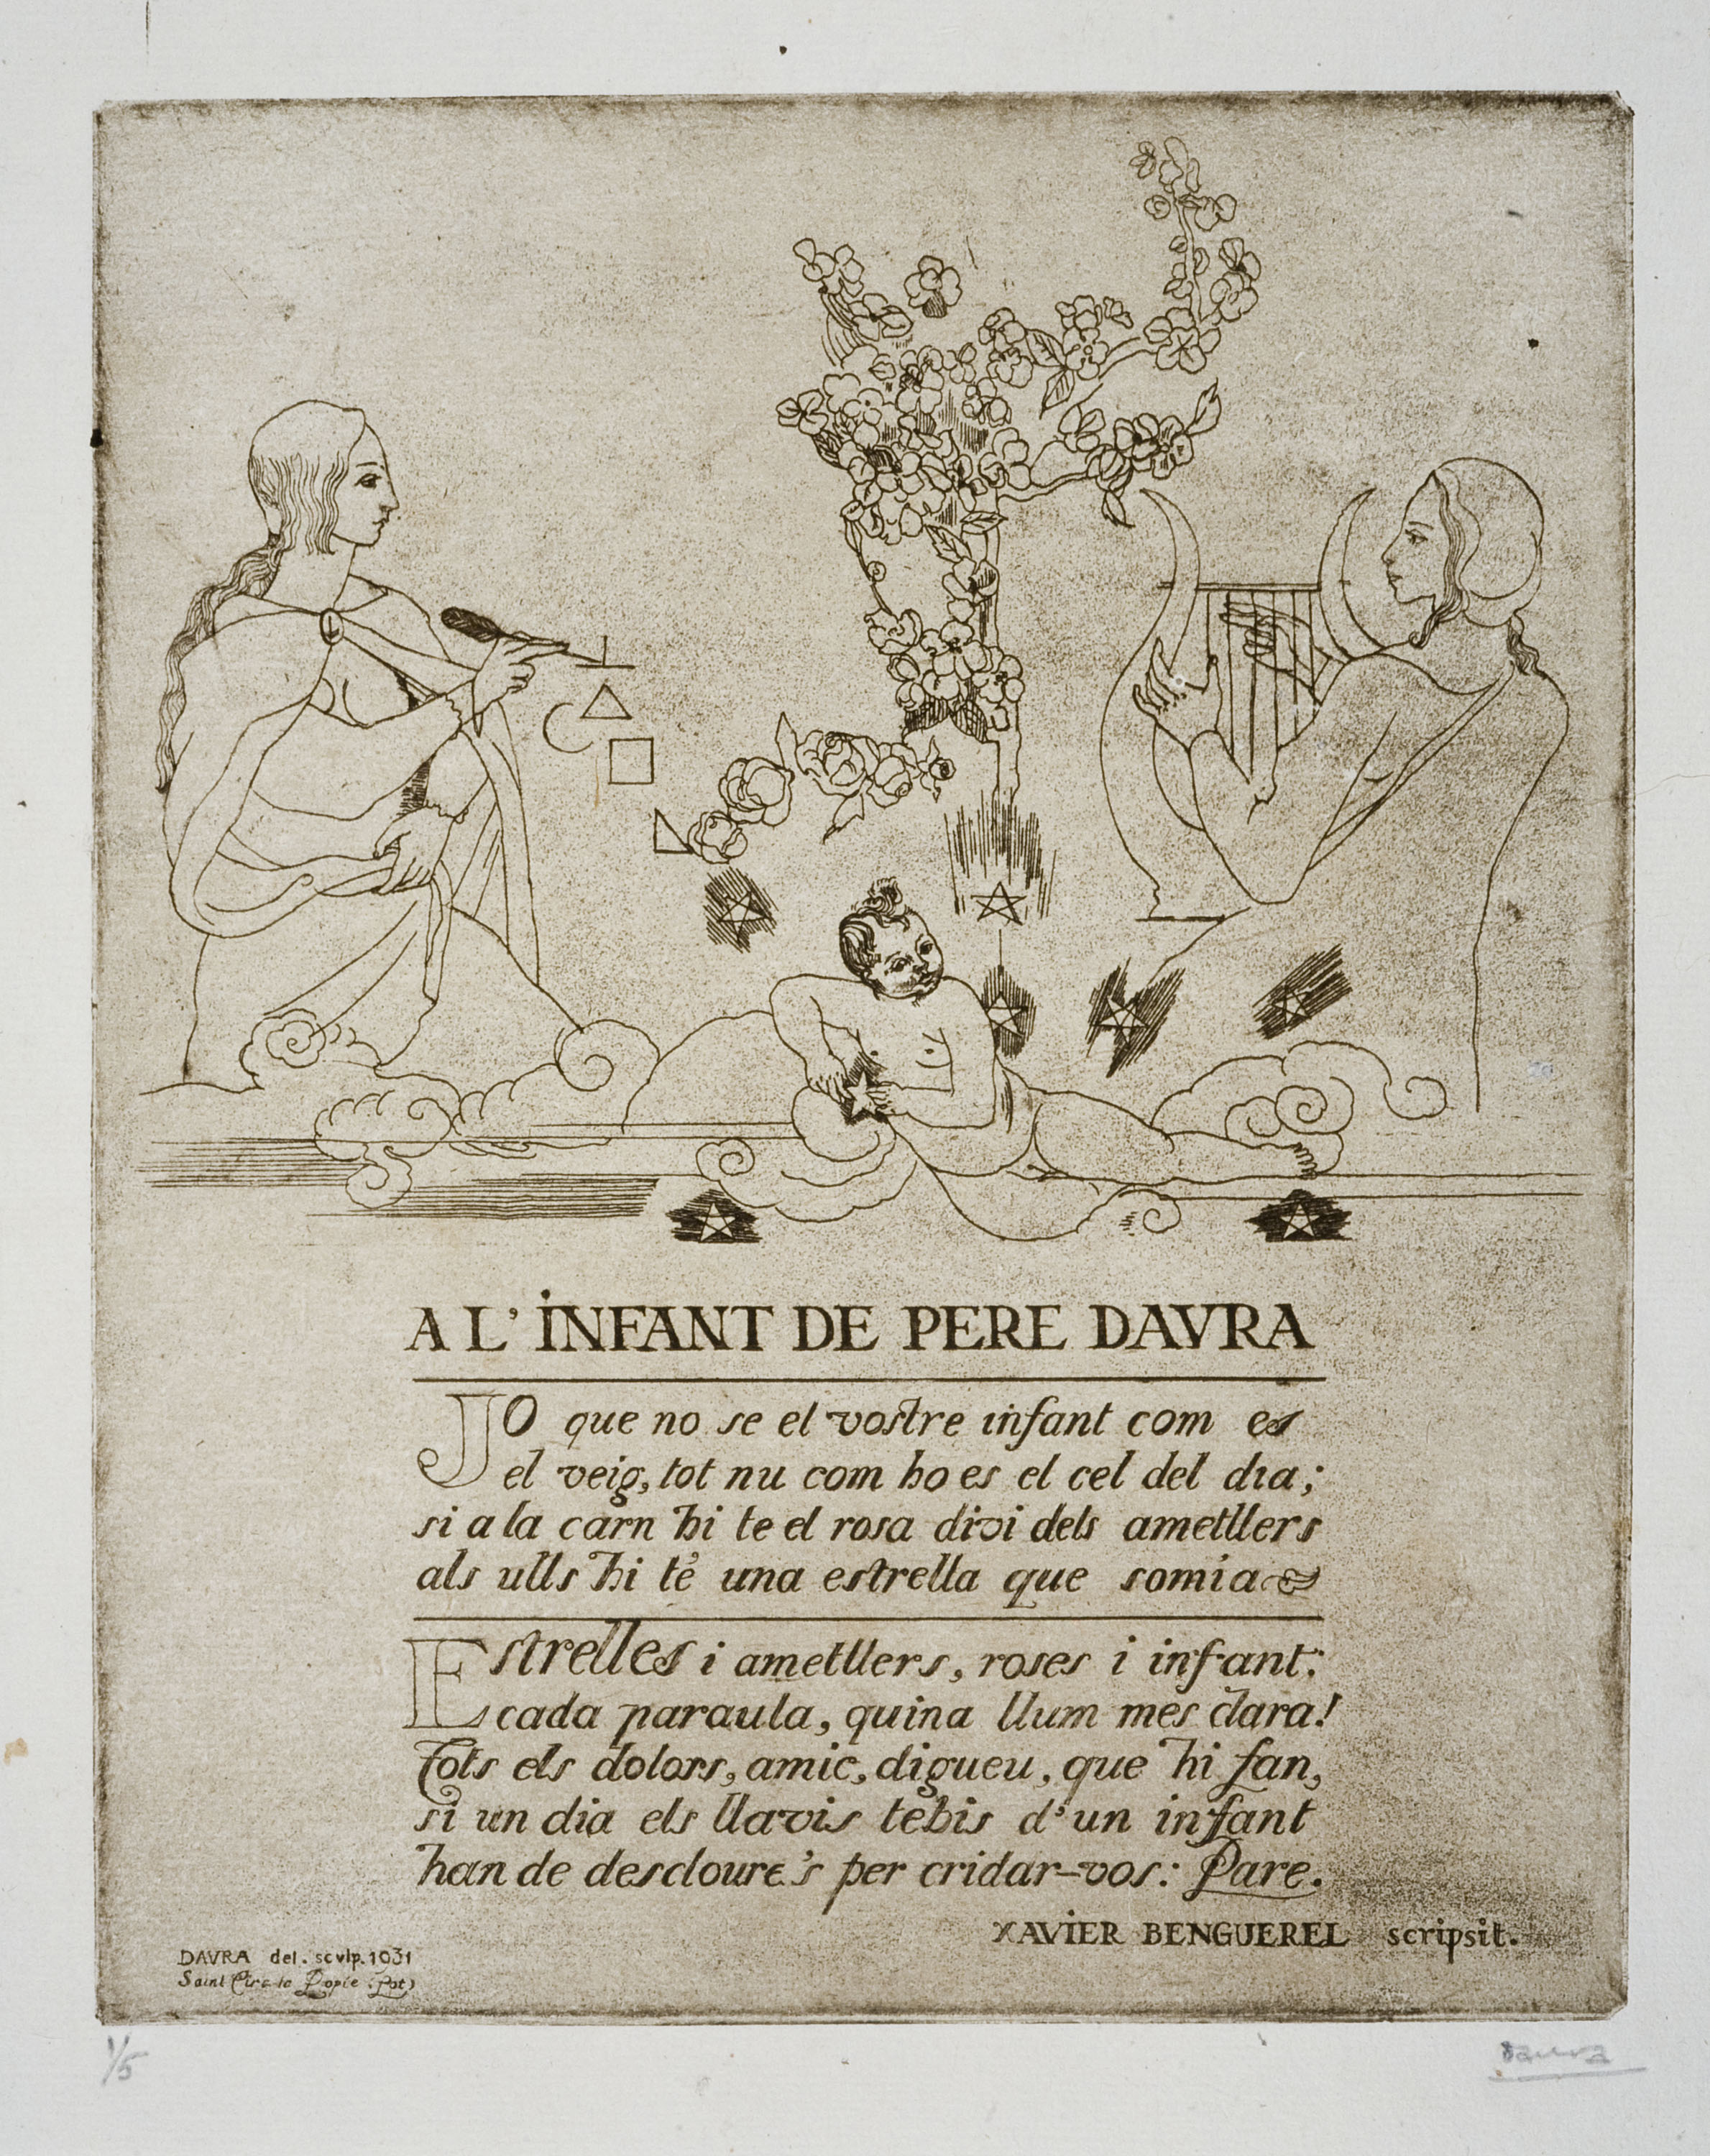 A L'INFANT DE PERE DAVRA
JO que no se el vostre infant com es
el veig, tot nu com ho es el cel del dia;
si a la carn hi te el rosa divi dels ametllers
als ulls hi té una estrella que somia
Estrelles i ametllers, roses i infant:
cada paraula, quina llum mes clara!
Tots els dolors, amic, digueu, que hi fan,
si un dia els llavis tebis d'un infant
han de descloure's per cridar-vos: Pare.
XAVIER BENGUEREL scripsit.
DAVRA del. sculp. 1931
Saint Cirq la Popie (Lot)
1/5
Daura